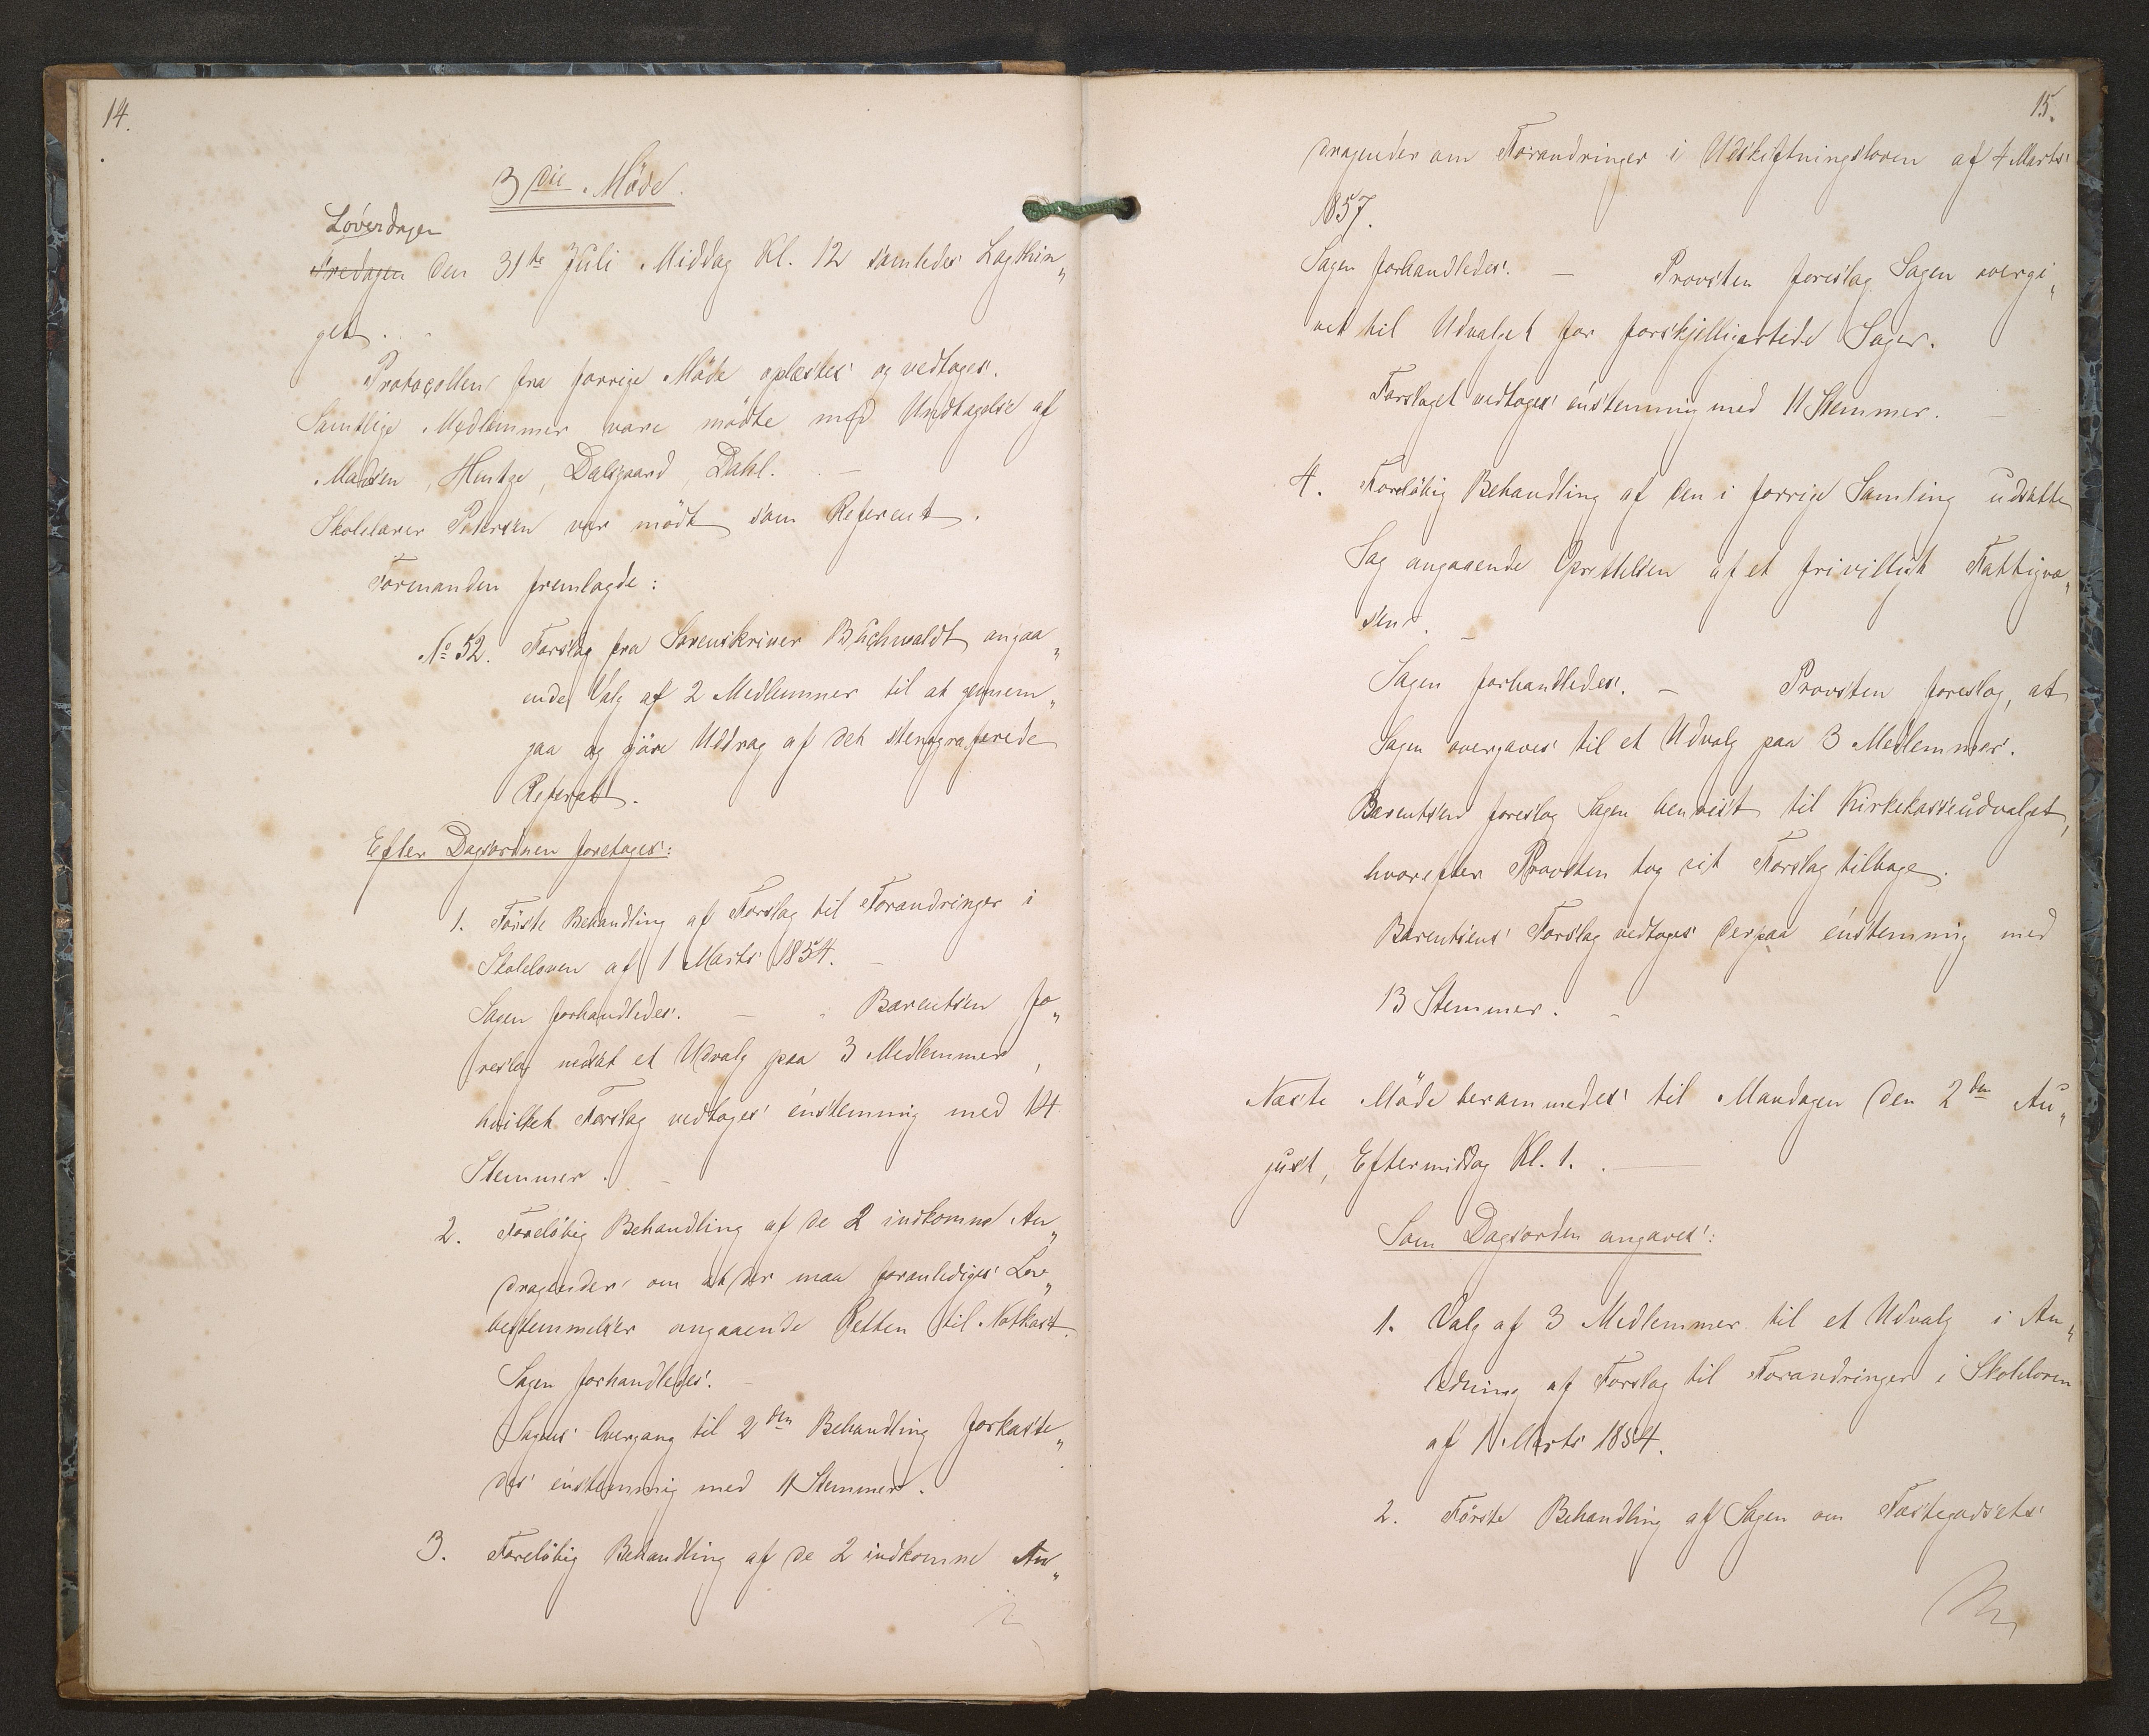 14.
3die Möde.
Löverdagen
Fredagen den 31te Juli Middag Kl. 12 samledes Lagthin„
get.
Protocollen fra forrige Möde oplæstes og vedtoges.
Samtlige Medlemmer vare mödte med Undtagelse af
Madsen, Hentze, Dalsgaard, Dahl. —
Skolelærer Petersen var mödt som Referent.
Formanden fremlagde:
No 52. Forslag fra Sorenskriver Buchwaldt angaa„
ende Valg af 2 Medlemmer til at gennem„
gaa og gjöre Uddrag af det stenograferede
Referat.
Efter Dagsordnen foretoges:
1. Förste Behandling af Forslag til Forandringer i
Skoleloven af 1 Marts 1854. —
Sagen forhandledes. — Barentsen fo„
reslog nedsat et Udvalg paa 3 Medlemmer,
hvilket Forslag vedtoges énstemmig med 14
Stemmer. —
2. Foreløbig Behandling af de 2 indkomne An„
dragender om at der maa foranlediges Lov„
bestemmelser angaaende Retten til Notkast.
Sagen forhandledes. —
Sagens Overgang til 2den Behandling forkaste„
des énstemmig med 11 Stemmer.
3. Foreløbig Behandling af de 2 indkomne An„
15.
dragender om Forandringer i Udskiftningsloven af 4 Marts
1857.
Sagen forhandledes. — Provsten foreslog Sagen overgi„
vet til Udvalget for forskjelligartede Sager.
Forslaget vedtoges énstemmig med 11 Stemmer. —
4. Foreløbig Behandling af den i forrige Samling udsatte
Sag angaaende Oprettelsen af et frivilligt Fattigvæ„
sen. —
Sagen forhandledes. — Provsten foreslog, at
Sagen overgaves til et Udvalg paa 3 Medlemmer.
Barentsen foreslog Sagen henvist til Kirkekasseudvalget,
hvorefter Provsten tog sit Forslag tilbage.
Barentsens Forslag vedtoges derpaa énstemmig med
13 Stemmer. —
Næste Möde berammedes til Mandagen den 2den Au„
gust, Eftermiddag Kl. 1. —
Som Dagsorden angaves:
1. Valg af 3 Medlemmer til et Udvalg i An„
ledning af Forslag til Forandringer i Skoleloven
af 1 Marts 1854.
2. Förste Behandling af Sagen om Fæstegodsets